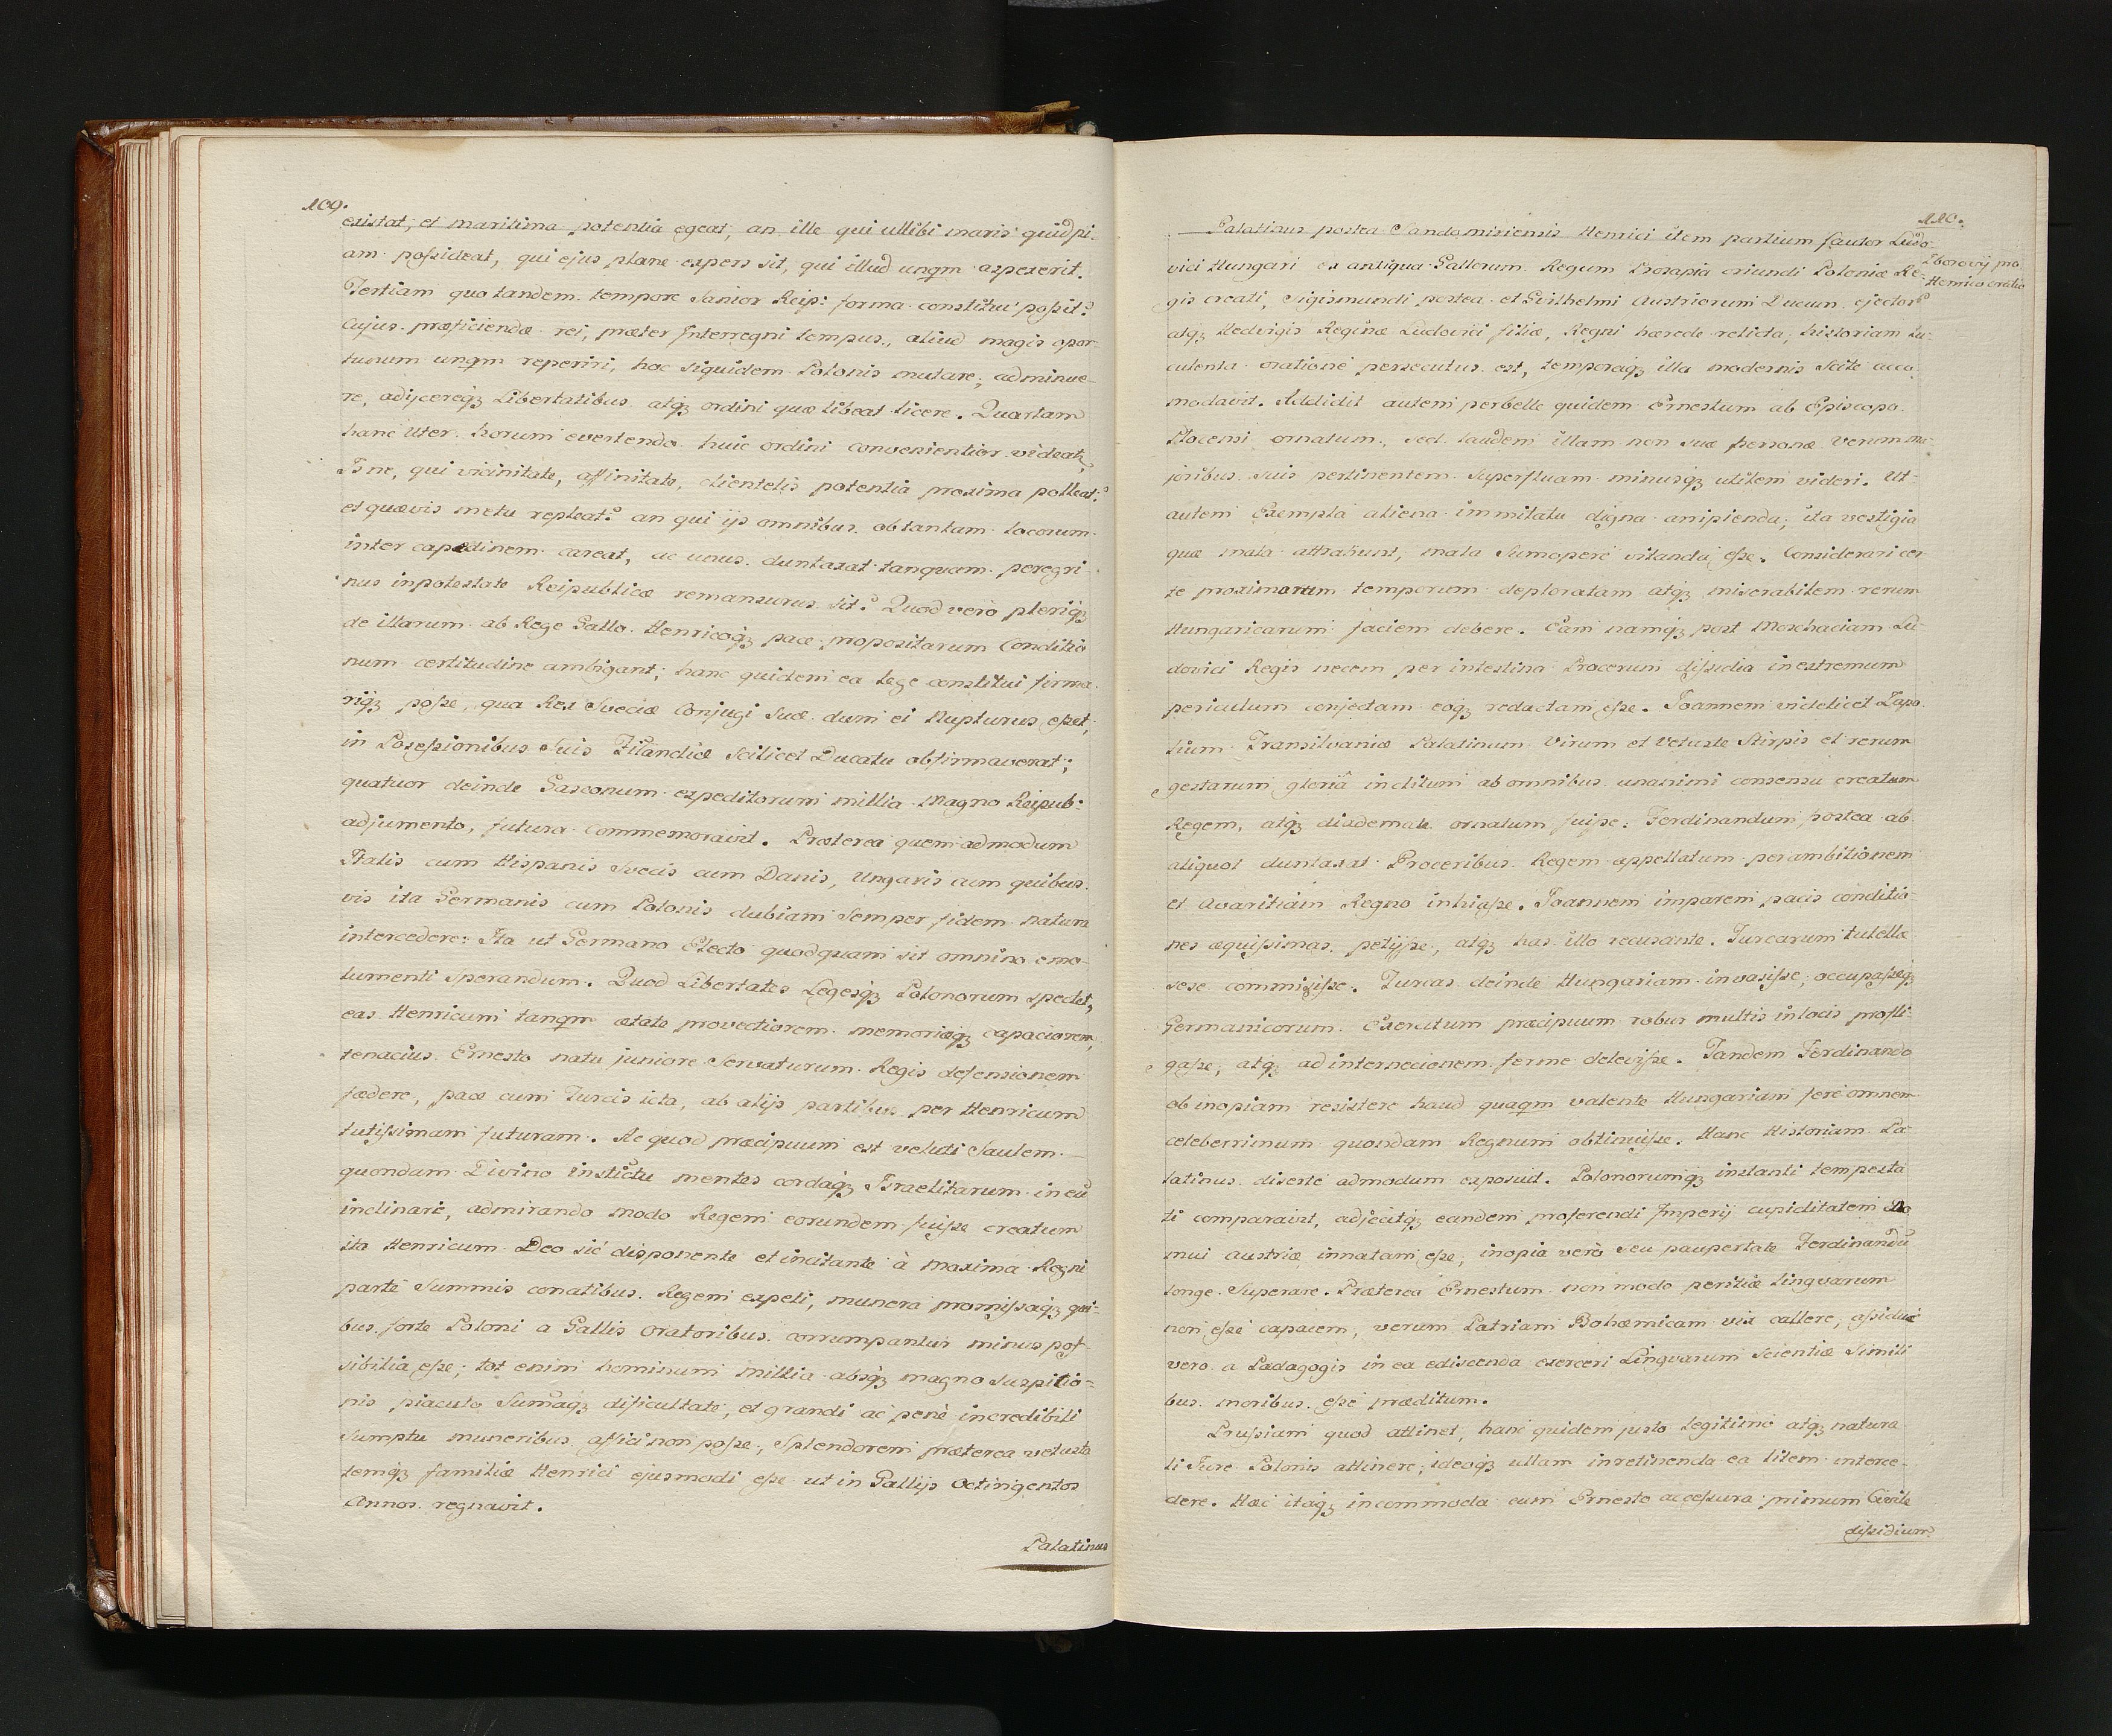 109.
existat, et maritima potentia egeat, an ille qui ullibi maris quidpi-
am possideat, qui ejus plane expers sit, qui illud unqm aspexerit.
Tertiam quo tandem tempore Sanior Reip: forma constitui possit?
Cujus præficiendæ rei, præter Interregni tempus, aliud magis opor-
tunum unqm reperiri, hoc siquidem Polonis mutare, adminue-
re, adijcereqȝ Libertatibus atqȝ ordini quæ libeat licere. Quartam
hanc Uter horum evertendo huic ordini convenientior videatr,
Is ne, qui vicinitate, affinitate, clientelis potentia proxima polleat?
et quævis metu repleat? an qui ijs omnibus ob tantam locorum
inter capedinem careat, ac unus duntaxat tanquam peregri-
nus in potestate Reipublicæ remansurus sit? Quod verò pleriqȝ
de illarum ab Rege Gallo Henricoqȝ pace propositarum Conditio
num certitudine ambigant; hanc quidem ea lege constitui firma
riqȝ posse, qua Rex Sveciæ Conjugi suæ dum ei Nupturus esset,
in Possessionibus Suis Filandiæ scilicet Ducatu obfirmaverat;
quatuor deinde Gasconum expeditorum millia Magno Reipub:
adjumento, futura Commemoravit. Præterea quem admodum
Italis cum Hispanis Svecis cum Danis, Ungaris cum quibus-
vis ita Germanis cum Polonis dubiam Semper fidem natura
intercedere: Ita ut Germano Electo quodquam sit omnino emo-
lumenti sperandum. Quod Libertates Legesqȝ Polonorum spectet,
eas Henricum tanqm ætate provectiorem memoriæqȝ capaciorem,
tenacius Ernesto natu juniore Servaturum. Regis defensionem
fædere, pace cum Turcis icta, ab alijs partibus per Henricum
tutissimam futuram. Ac quod præcipuum est veluti Saulem
quondam Divino instictu mentes cordaqȝ Israelitarum in eū
inclinare, admirando modo Regem eorundem fuisse creatum
ita Henricum Deo sic disponente et incitante à maxima Regni
parte Summis conatibus Regem expeti, munera promissaqȝ qui-
bus forte Poloni a Gallis Oratoribus corrumpantur minus pos-
sibilia esse; tot enim hominum millia absqȝ magno suspitio-
nis piaculo Sumāqȝ dificultate, et grandi ac penè incredibili
Sumptu muneribus affici non posse, Splendorem præterea vetusta
temqȝ familiæ Henrici ejusmodi esse ut in Gallijs Octingentos
Annos regnavit.
Palatinus
110.
Palatinus postea Sandomiriensis Henrici item partium fautor Ludo-
vici Hungari ex antiqua Gallorum Regum Prosapia oriundi Poloniæ Re-
gis creati, Sigismundi postea et Gvilhelmi Austriorum Ducum ejector
atqȝ Hedvigis Reginæ Ludovici filiæ, Regni hærede relicta, historiam lu-
culenta oratione persecutus est, temporaqȝ illa modernis Scite acco-
modavit. Addidit autem perbelle quidem Ernestum ab Episcopo
Plocensi ornatum, sed laudem illam non suæ personæ verum ma-
joribus suis pertinentem Superfluam minusqȝ utilem videri. Ut
autem Exempla aliena immitatu digna arripienda, ita vestigia
quæ mala attrahunt, mala Sumopere vitanda esse. Considerari cer-
te proximorum temporum deploratam atqȝ miserabilem rerum
Hungaricarum faciem debere. Eam namqȝ post Mochaciam Lu-
dovici Regis necem per intestina Procerum dissidia in extremum
periculum conjectam eoqȝ redactam esse. Joannem videlicet Zapo
lium Transilvaniæ Palatinum Virum et Vetuste Stirpis et rerum
gestarum gloriâ inclitum ab omnibus unanimi consensu creatum
Regem, atqȝ diademate ornatum fuisse: Ferdinandum postea ab
aliquot duntaxat Proceribus Regem appellatum per ambitionem
et Avaritiam Regno inhiasse. Joannem imparem pacis conditio-
nes æquissimas petijsse, atqȝ has illo recusante. Turcarum tutellæ
sese commisisse. Turcas deinde Hungariam invasisse, occupasseqȝ
Germanicorum Exercitum præcipuum robur multis in locis profli-
gasse, atqȝ ad internecionem ferme delevisse. Tandem Ferdinando
ob inopiam resistere haud quaqm valente Hungariam fere omnem
celeberrimum quondam Regnum obtinuisse. Hanc Historiam Pa
latinus diserte admodum exposuit. Polonorumqȝ instanti tempesta
ti comparavit, adjecitqȝ eandem proferendi Imperij cupiditatem Do
mui Austriæ innatam esse, inopia verò seu paupertate Ferdinandū
longe Superare. Præterea Ernestum non modo peritiæ Lingvarum
non esse capacem, verum Patriam Bohæmicam vix callere, assidue
vero a Pædagogis in ea ediscenda exerceri Lingvarum Scientiæ Simili
bus moribus esse præditum.
Prussium quod attinet, hanc quidem justo legitimo atqȝ natura
li Jure Polonis attinere; ideoqȝ ullam in retinenda ea litem interce-
dere. Hæc itaqȝ incommoda cum Ernesto accessura primum Civile
dissidium
Zborovij pro
Henrico oratio